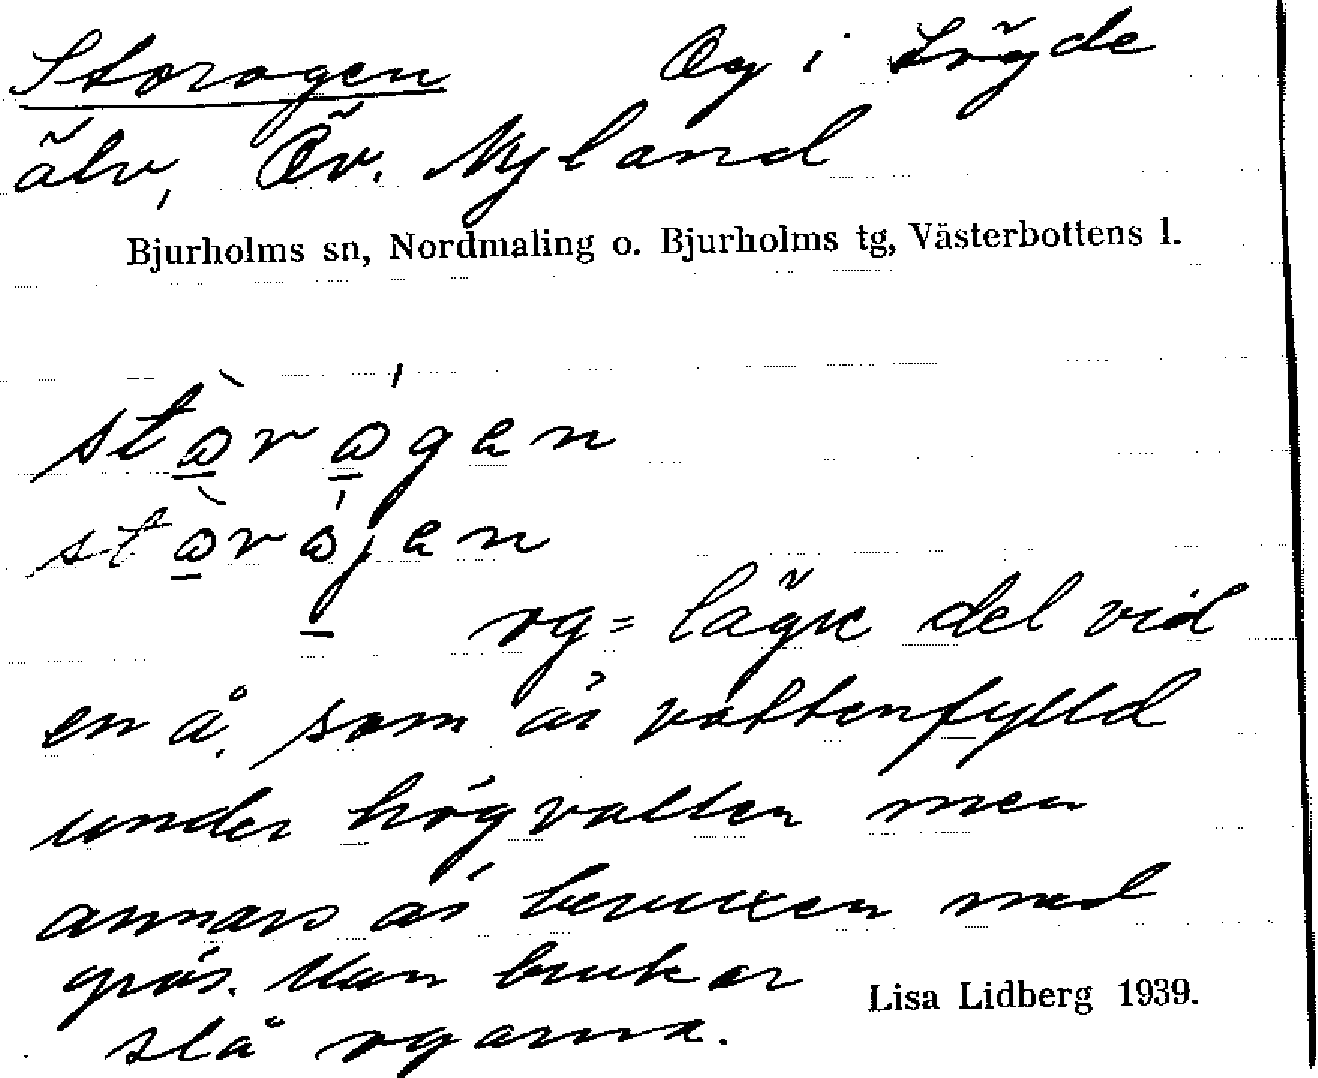 Storogen Og i Lögde
älv, Öv. Nyland
Bjurholms sn, Nordmaling o. Bjurholms tg, Västerbottens l.
stòrógen
stòrójen
og = lägre del vid
en å, som är vattenfylld
under högvatten men
annars är bevuxen med
gräs. Man brukar
slå ogarna.
Lisa Lidberg 1939.